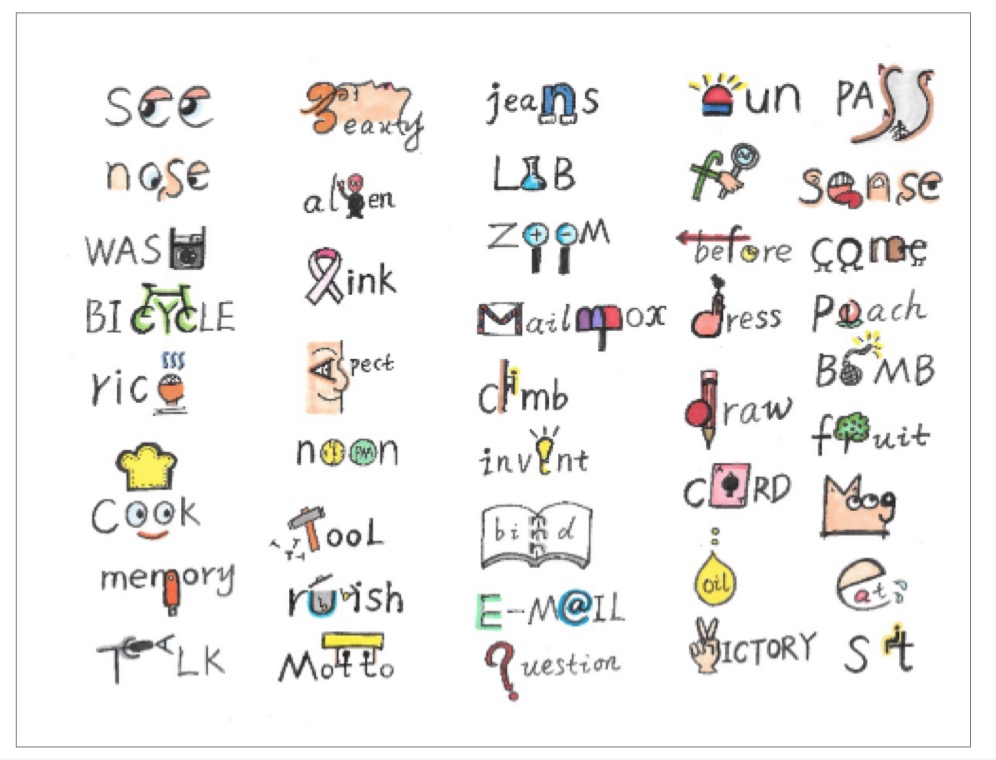 see
nose
WAS
BICYCLE
rice
Cook
memory
TALK
Beauty
alien
Pink
pect
noon
TooL
rubish
Motto
jeans
LAB
ZOOM
Mailbox
climb
invent
bind
E-M@IL
Question
un
before
dress
draw
CARD
oil
VICTORY
PASS
sense
come
Peach
BOMB
fruit
og
at
Sit